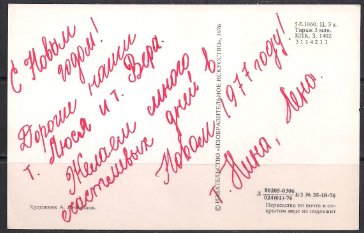 С Новым
годом!
Дорогие наши
т. Люся и т. Вера.
Желаем много
счастливых дней в
Новом 1977 году!
т. Нина, Лена.
5-6-1060. Ц. 3 к.
Тираж 3 млн.
Зак. 1402
3114211
© ИЗДАТЕЛЬСТВО «ИЗОБРАЗИТЕЛЬНОЕ ИСКУССТВО», 1976
80205-0306
024(01)-76
БЗ № 35-18-76
Пересылка по почте в от-
крытом виде не подлежит
Художник А.